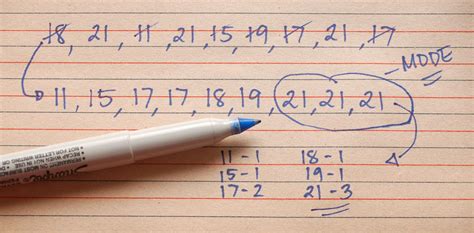 18, 21, 11, 21, 15, 19, 17, 21, 17
MODE
11, 15, 17, 17, 18, 19, 21, 21, 21
11-1 18-1
15-1 19-1
17-2 21-3